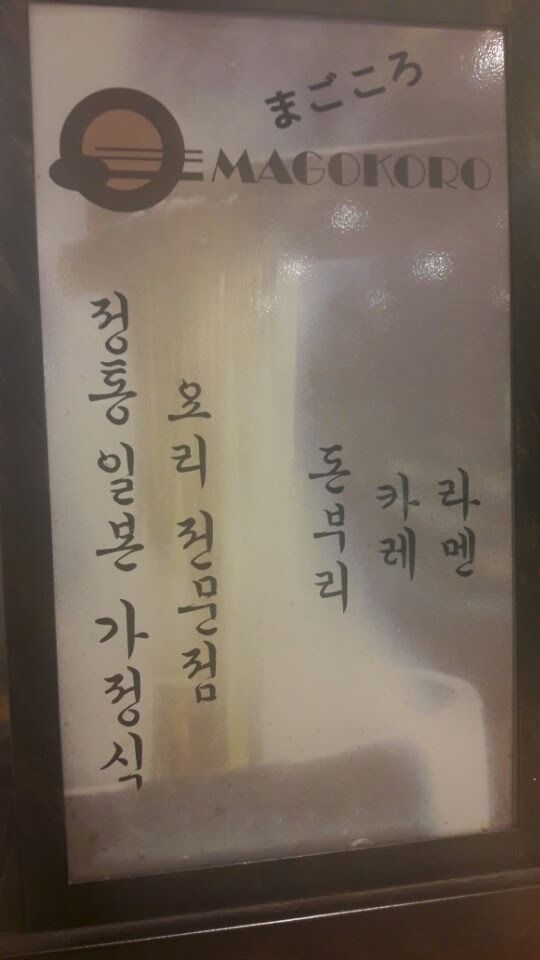 まごころ
MAGOKORO
정통 일본 가정식
오리 전문점
돈부리
카레
라멘